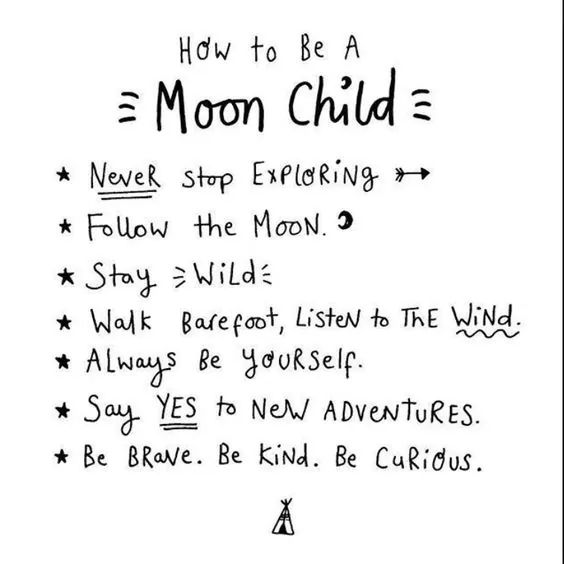 How to Be A
Moon Child
★ Never stop Exploring
★ Follow the Moon.
★ Stay Wild
★ Walk Barefoot, Listen to The Wind.
★ Always Be Yourself.
★ Say YES to New Adventures.
★ Be Brave. Be Kind. Be Curious.